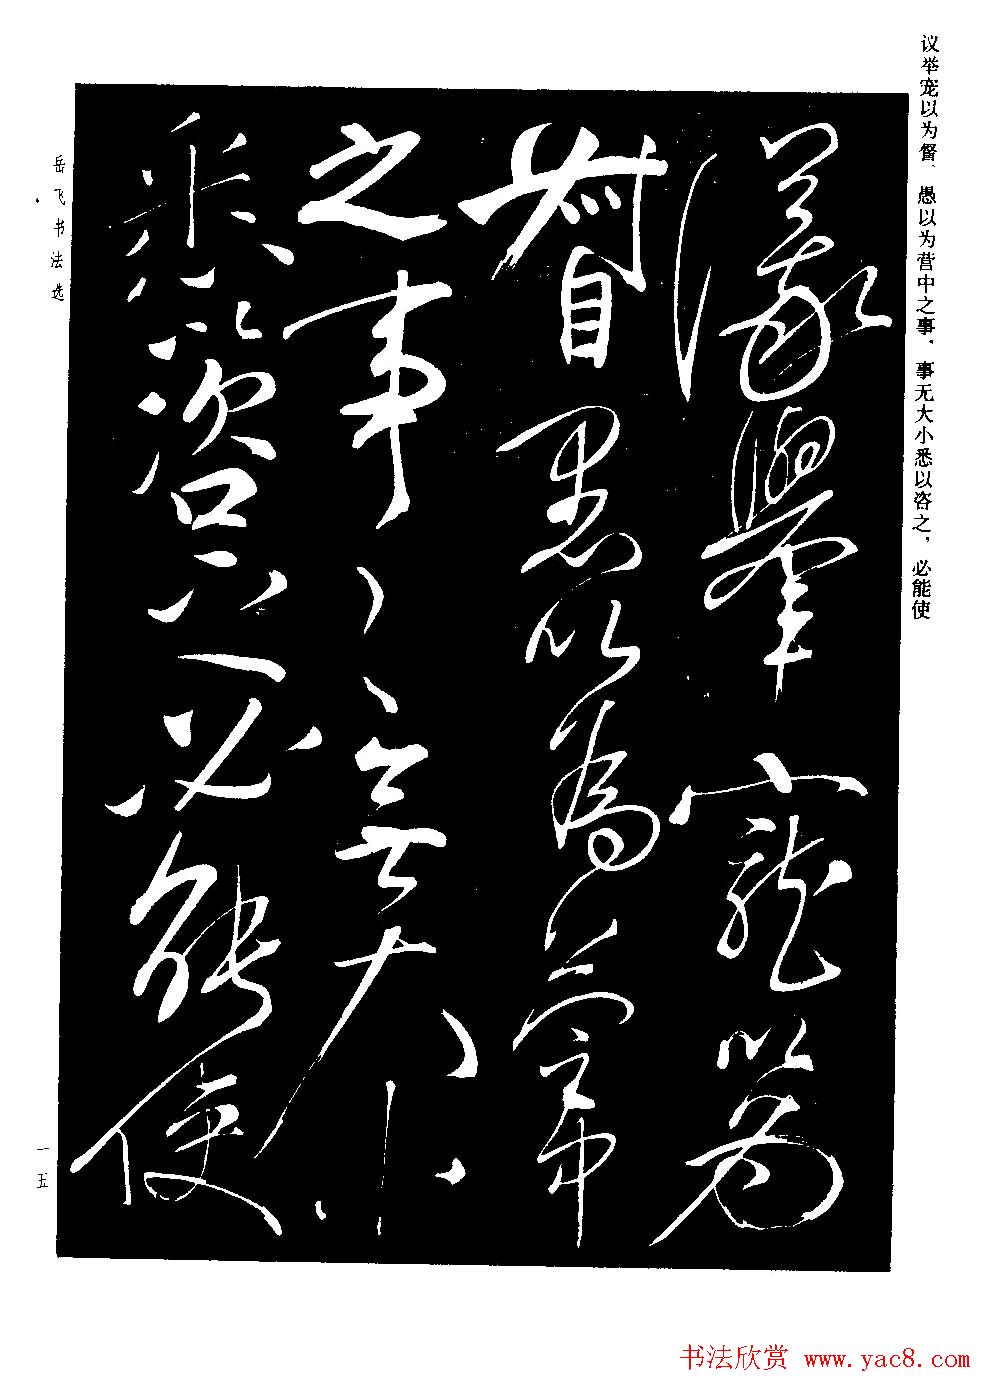 议举宠以为督、愚以为营中之事、事无大小悉以咨之，必能使
議舉寵以為
督愚以為營中
之事〻無大小
悉以咨之必能使
岳飞书法选
一五
书法欣赏 www.yac8.com